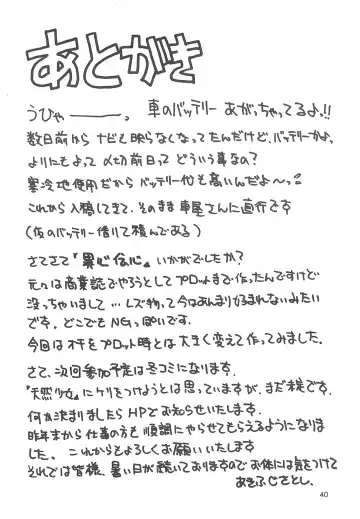 あとがき
うひゃ―――、車のバッテリーあがっちゃってるよ!!
数日前から ナビも映らなくなってたんだけど、バッテリーかよ。
よりにもよって〆切前日ってどういう事なの?
寒冷地使用だからバッテリー代も高いんだよ〜っ
これから入稿してきて、そのまま車屋さんに直行です
(仮のバッテリー借りて積んである)
さてさて『
心』いかがでしたか?
元々は商業誌でやろうとしてプロットまで作ったんですけど
没っちゃいまして…レズ物って今はあんまり好まれないみたい
です。どこでもNGっぽいです。
今回はオチをプロット時とは大きく変えて作ってみました。
さて、次回参加予定は冬コミになります。
『天然少女』にケリをつけようとは思っていますが、まだ未定です。
何か決まりましたらHPでお知らせいたします。
昨年末から仕事の方も順調にやらせてもらえるようになりま
した。これからもよろしくお願いいたします
それでは皆様、暑い日が続いておりますのでお体には気をつけて
あきふじさとし.
40